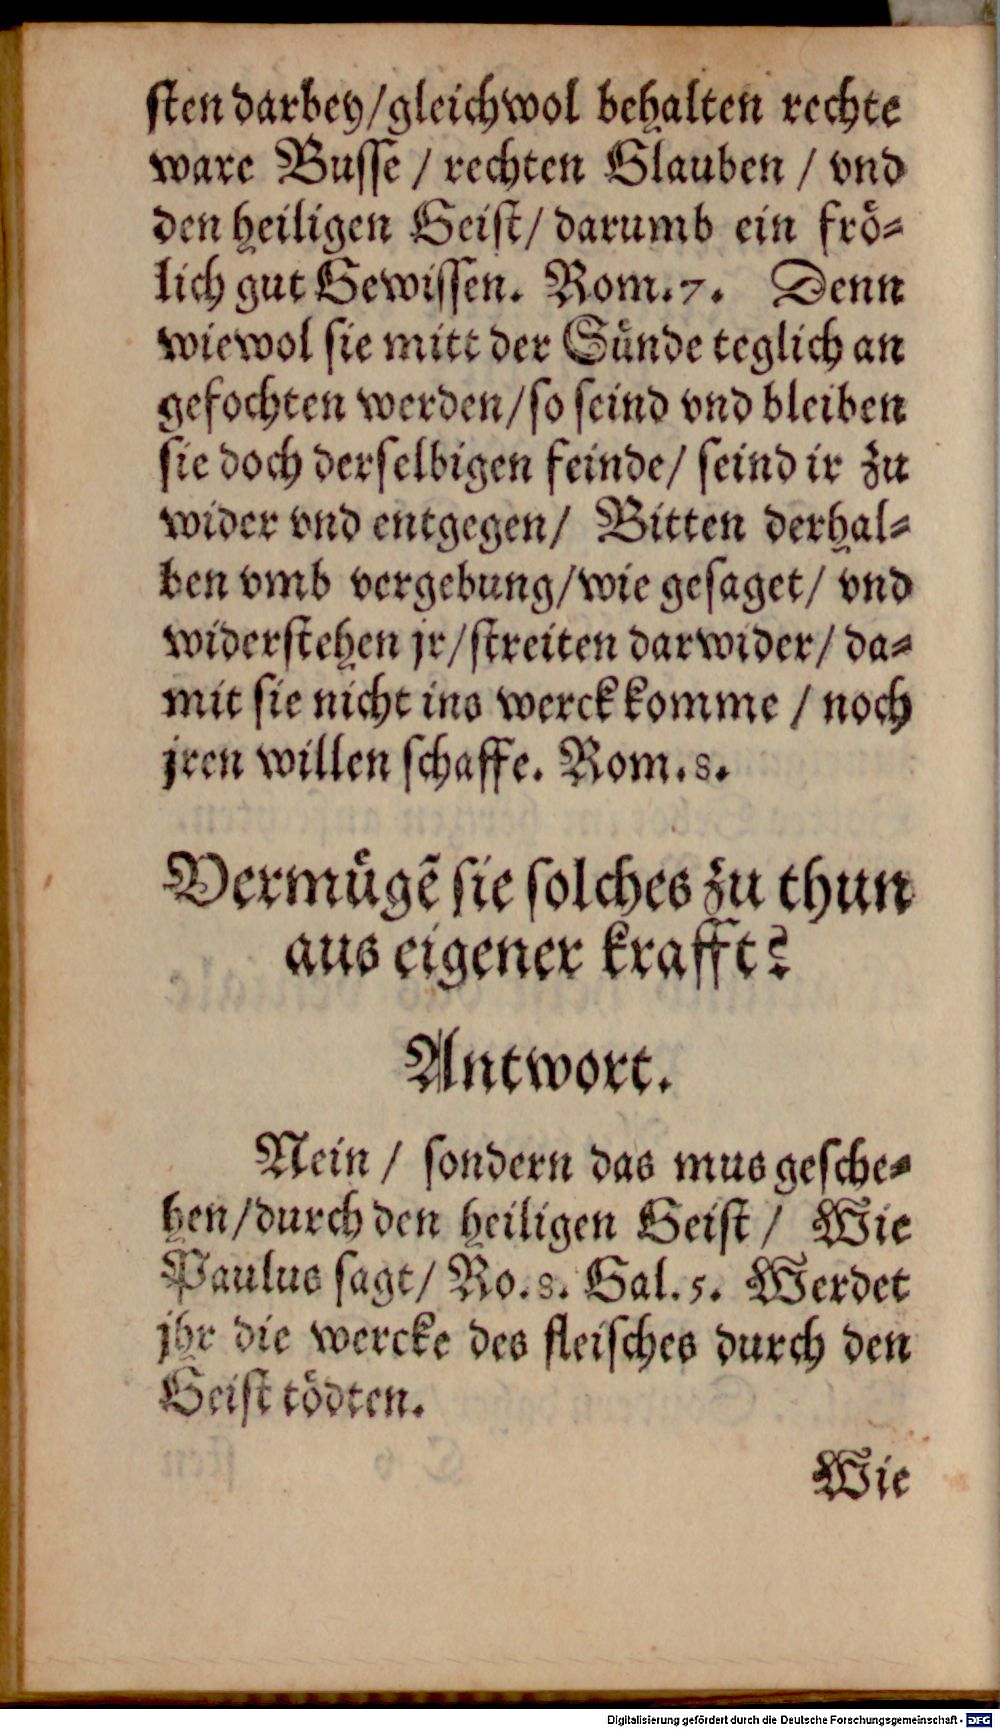 sten darbey/gleichwol behalten rechte
ware Busse / rechten Glauben / vnd
den heiligen Geist/ darumb ein frö-
lich gut Gewissen. Rom. 7. Denn
wiewol sie mitt der Sünde teglich an
gefochten werden/so seind vnd bleiben
sie doch derselbigen feinde/ seind ir zu
wider vnd entgegen/ Bitten derhal-
ben vmb vergebung/wie gesaget/ vnd
widerstehen jr/streiten darwider/ da-
mit sie nicht ins werck komme / noch
jren willen schaffe. Rom. 8.
Vermügẽ sie solches zu thun
aus eigener krafft?
Antwort.
Nein / sondern das mus gesche-
hen/durch den heiligen Geist / Wie
Paulus sagt/ Ro. 8. Gal. 5. Werdet
jhr die wercke des fleisches durch den
Geist tödten.
Wie
Digitalisierung gefördert durch die Deutsche Forschungsgemeinschaft - DFG